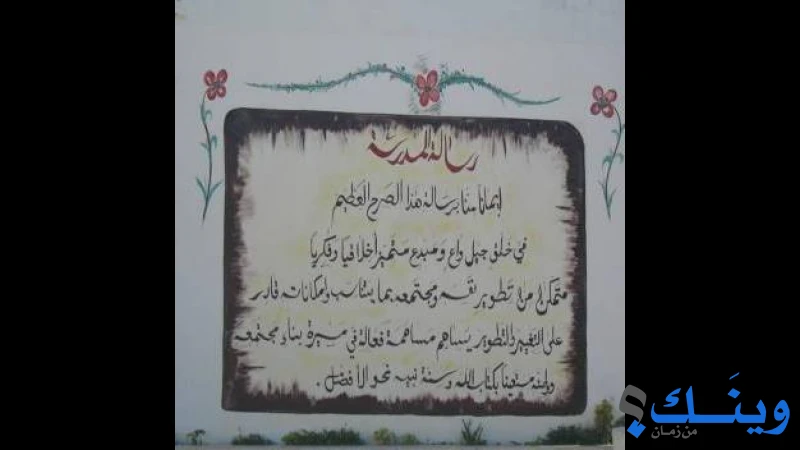 رسالة المدرسة
إيمانا منا برسالة هذا الصرح العظيم
في خلق جيل واع ومبدع متميز أخلاقيا وفكريا
متمكن من تطوير نفسه ومجتمعه بما يتناسب وإمكاناته قادر
على التغيير والتطوير يساهم مساهمة فعالة في مسيرة بناء مجتمعه
وأمته مستعينا بكتاب الله وسنة نبيه نحو الأفضل.
وينك؟
من زمان